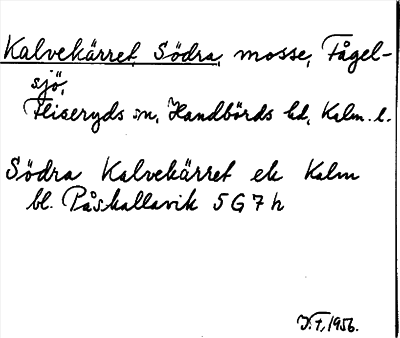 Kalvekärret, Södra, mosse, Fågel-
sjö,
Fliseryds sn, Handbörds hd, Kalm. l.
Södra Kalvekärret ek Kalm
bl. Påskallavik 5 G 7 h
1956.